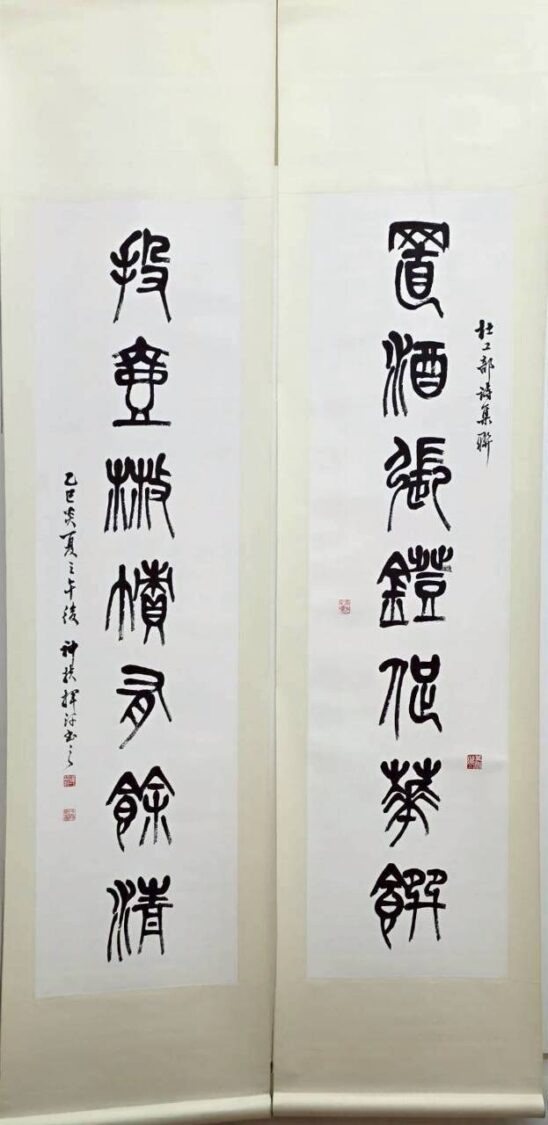 置酒張鐙促華饌
杜工部詩集聯
投壺散幘有餘清
乙巳炎夏之午後 揮汗書之